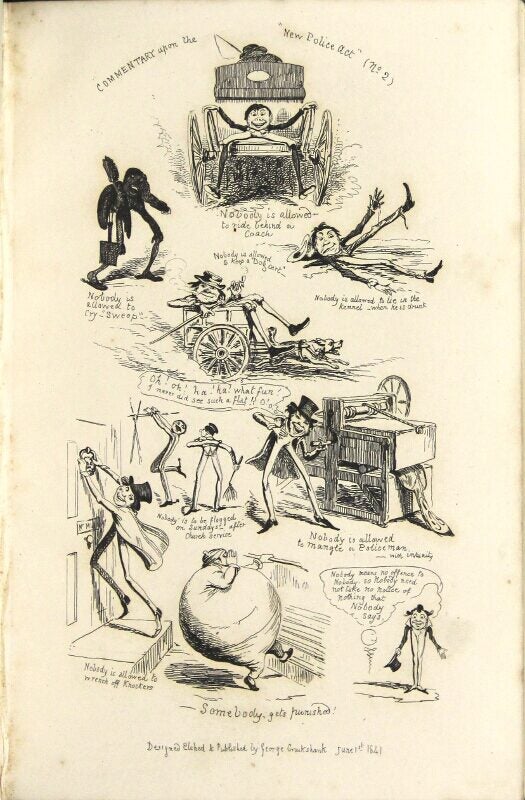 COMMENTARY upon the "New Police Act" (No 2)
Nobody is allowed
to ride behind a
Coach
Nobody is
allowed to
Cry "Sweep".
Nobody is allowed
to keep a "Dog
Cart"
Nobody is allowed to lie in the
kennel - when he is drunk
Oh! oh! ha! ha! what fun!
I never did see such a flat!! O! O
"Nobody" is to be flogged
on Sundays! after
Church Service
Nobody is allowed
to mangle a Policeman,
— with impunity
Nobody is allowed to
wrench off Knockers
Nobody means no offence to
Nobody. so Nobody need
not take no notice of
nothing that
Nobody
says.
— Somebody. gets punished!
Designed Etched & Published by George Cruikshank June 1st 1841